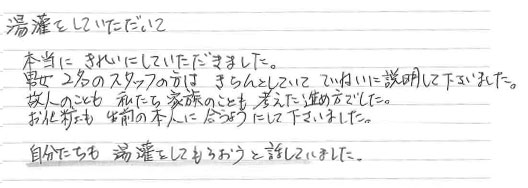 湯灌をしていただいて
本当に きれいにしていただきました。
男女 2名のスタッフの方は きちんとしていて ていねいに説明して下さいました。
故人のことも 私たち 家族のことも 考えた進め方でした。
お化粧も 生前の本人に 合うようにして下さいました。
自分たちも 湯灌をしてもらおうと話していました。